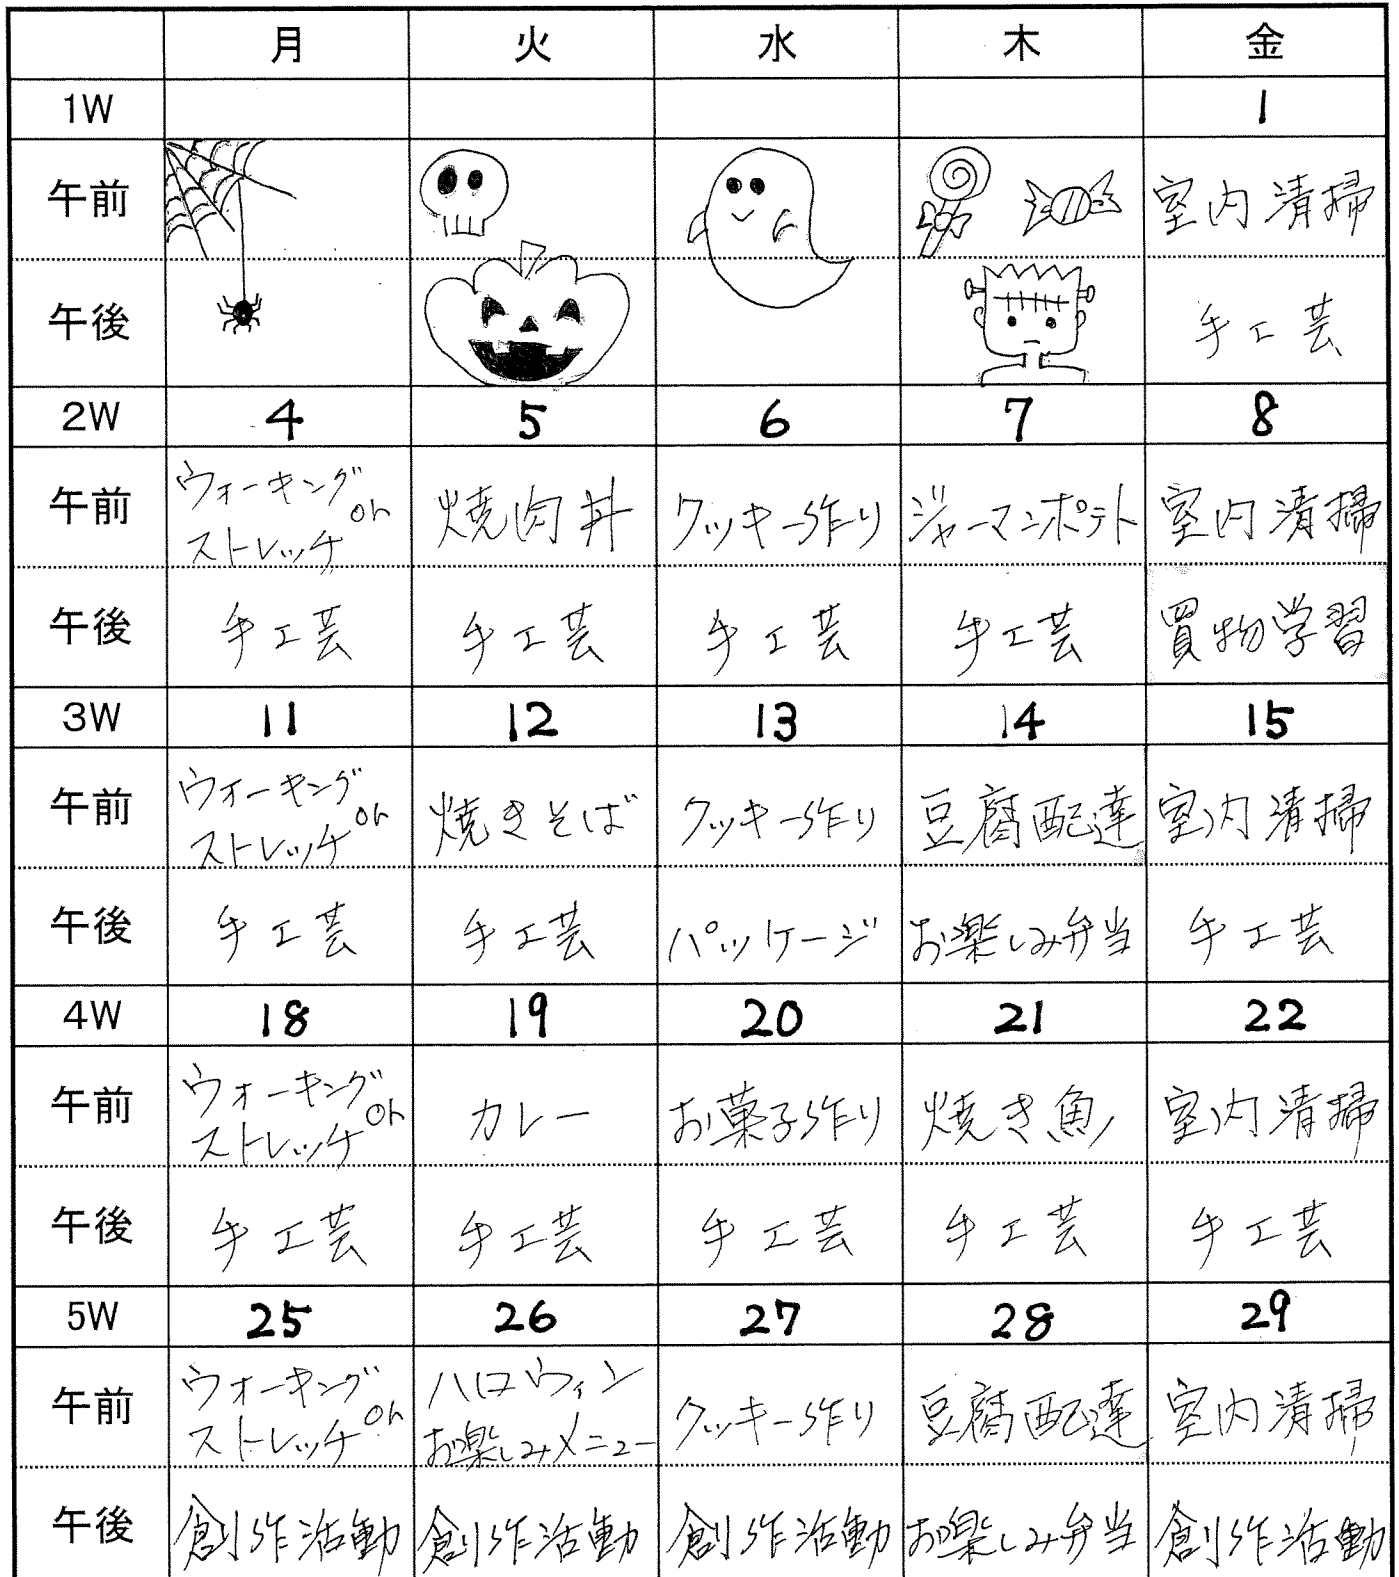 月 火 水 木 金
1W 1
午前 室内清掃
午後 手工芸
2W 4 5 6 7 8
午前 ウォーキング or ストレッチ 焼肉丼 クッキー作り ジャーマンポテト 室内清掃
午後 手工芸 手工芸 手工芸 手工芸 買物学習
3W 11 12 13 14 15
午前 ウォーキング or ストレッチ 焼きそば クッキー作り 豆腐配達 室内清掃
午後 手工芸 手工芸 パッケージ お楽しみ弁当 手工芸
4W 18 19 20 21 22
午前 ウォーキング or ストレッチ カレー お菓子作り 焼き魚 室内清掃
午後 手工芸 手工芸 手工芸 手工芸 手工芸
5W 25 26 27 28 29
午前 ウォーキング or ストレッチ ハロウィン お楽しみメニュー クッキー作り 豆腐配達 室内清掃
午後 創作活動 創作活動 創作活動 お楽しみ弁当 創作活動